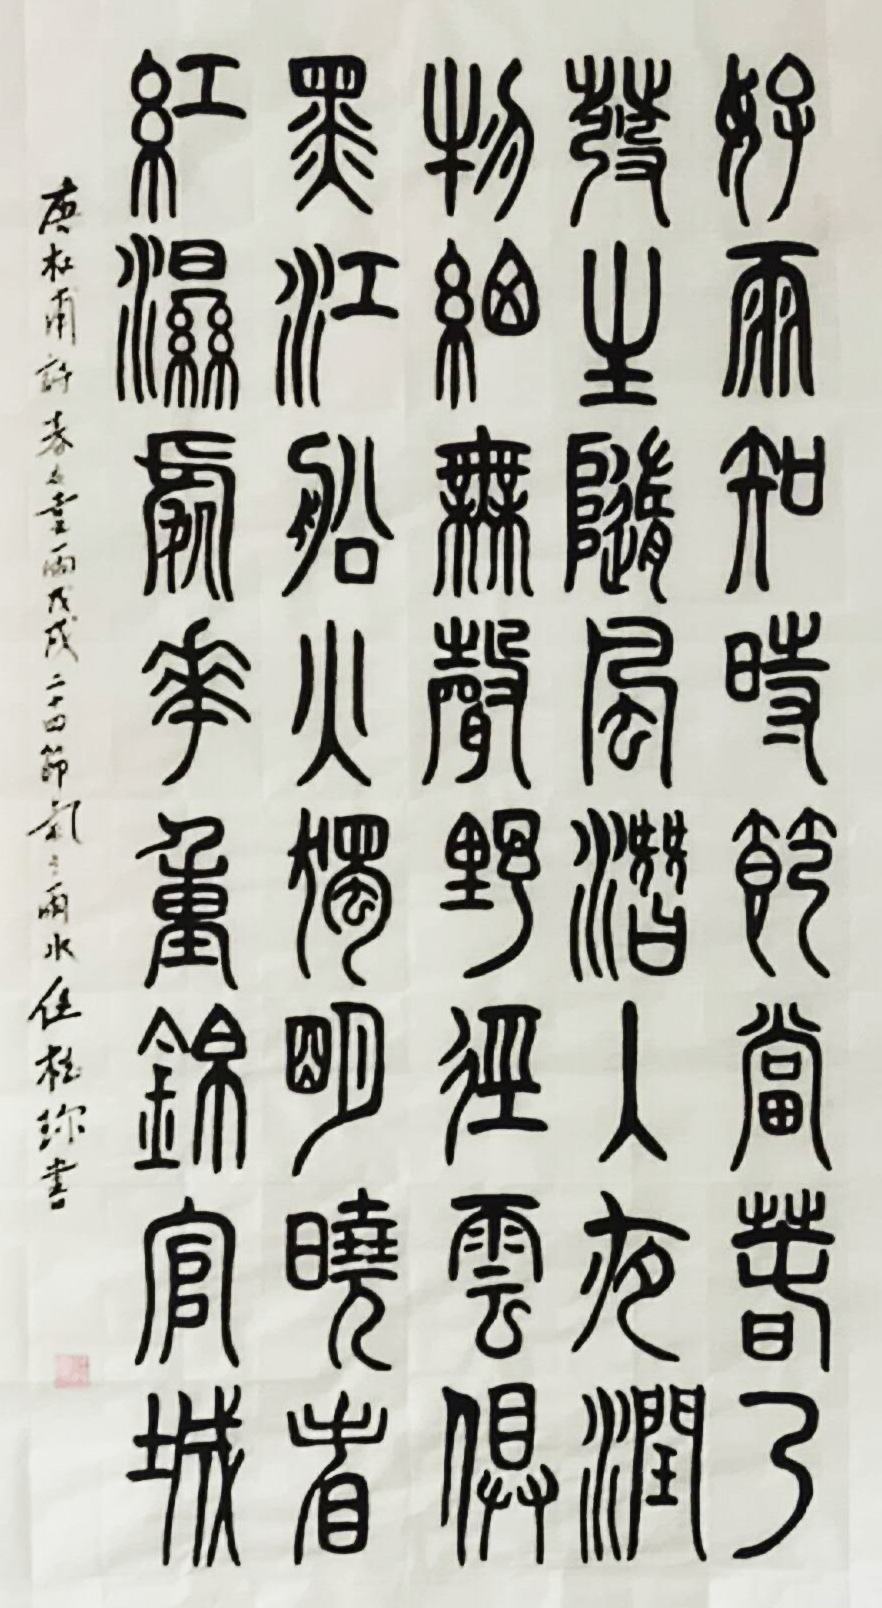 好雨知時節當春乃
發生隨風潛入夜潤
物細無聲野徑雲俱
黑江船火獨明曉看
紅濕處花重錦官城
唐杜甫詩春夜喜雨戊戌二十四節氣之雨水任桂珍書